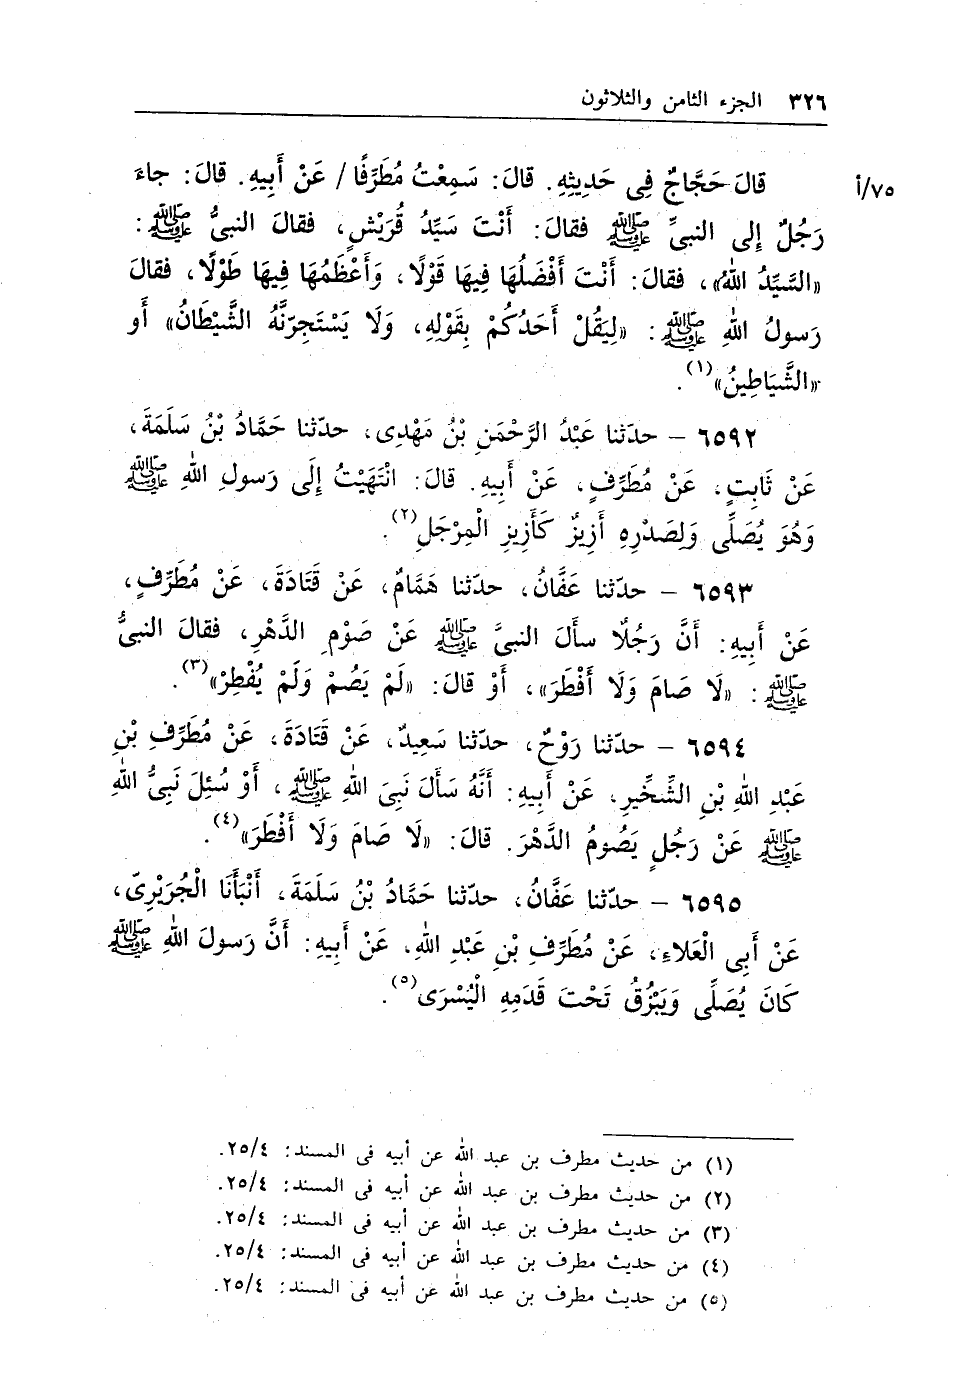 ٣٢٦ الجزء الثامن والثلاثون
قالَ حَجَّاجٌ فِى حَدِيثِهِ. قالَ: سَمِعْتُ مُطَرِّفًا / عَنْ أَبِيهِ. قالَ: جاءَ
٧٥/أ
رَجُلٌ إِلى النبىِّ ﷺ فقالَ: أَنْتَ سَيِّدُ قُرَيْشٍ، فقالَ النبىُّ ﷺ :
«السَّيِّدُ اللهُ»، فقالَ: أَنْتَ أَفْضَلُهَا فِيهَا قَوْلًا، وَأَعْظَمُهَا فِيهَا طَوْلًا، فقالَ
رَسولُ اللهِ ﷺ : «لِيَقُلْ أَحَدُكُمْ بِقَوْلِهِ، وَلَا يَسْتَجِرَّنَّهُ الشَّيْطَانُ» أَو
«الشَّيَاطِينُ»(١).
٦٥٩٢ – حدّثنا عَبْدُ الرَّحْمَنِ بْنُ مَهْدِى، حدّثنا حَمَّادُ بْنُ سَلَمَةَ،
عَنْ ثَابِتٍ، عَنْ مُطَرِّفٍ، عَنْ أَبِيهِ. قالَ: انْتَهَيْتُ إِلَى رَسولِ اللهِ ﷺ
وَهُوَ يُصَلِّى وَلِصَدْرِهِ أَزِيزٌ كَأَزِيزِ الْمِرْجَلِ(٢).
٦٥٩٣ – حدّثنا عَفَّانُ، حدّثنا هَمَّامٌ، عَنْ قَتَادَةَ، عَنْ مُطَرِّفٍ،
عَنْ أَبِيهِ: أَنَّ رَجُلًا سأَلَ النبىَّ ﷺ عَنْ صَوْمِ الدَّهْرِ، فقالَ النبىُّ
ﷺ : «لَا صَامَ وَلَا أَفْطَرَ»، أَوْ قالَ: «لَمْ يَصُمْ وَلَمْ يُفْطِرْ»(٣).
٦٥٩٤ – حدّثنا رَوْحٌ، حدّثنا سَعِيدٌ، عَنْ قَتَادَةَ، عَنْ مُطَرِّفِ بْنِ
عَبْدِ اللهِ بْنِ الشِّخِّيرِ، عَنْ أَبِيهِ: أَنَّهُ سَأَلَ نَبِىَ اللهِ ﷺ، أَوْ سُئِلَ نَبِىُّ اللهِ
ﷺ عَنْ رَجُلٍ يَصُومُ الدَّهْرَ. قالَ: «لَا صَامَ وَلَا أَفْطَرَ»(٤).
٦٥٩٥ – حدّثنا عَفَّانُ، حدّثنا حَمَّادُ بْنُ سَلَمَةَ، أَنْبَأَنَا الْجُرَيْرِىّ،
عَنْ أَبِى الْعَلَاءِ، عَنْ مُطَرِّفِ بْنِ عَبْدِ اللهِ، عَنْ أَبِيهِ: أَنَّ رَسولَ اللهِ ﷺ
كَانَ يُصَلِّى وَيَبْزُقُ تَحْتَ قَدَمِهِ الْيُسْرَى(٥).
(١) من حديث مطرف بن عبد الله عن أبيه فى المسند: ٢٥/٤.
(٢) من حديث مطرف بن عبد الله عن أبيه فى المسند: ٢٥/٤.
(٣) من حديث مطرف بن عبد الله عن أبيه فى المسند: ٢٥/٤.
(٤) من حديث مطرف بن عبد الله عن أبيه فى المسند: ٢٥/٤.
(٥) من حديث مطرف بن عبد الله عن أبيه فى المسند: ٢٥/٤.